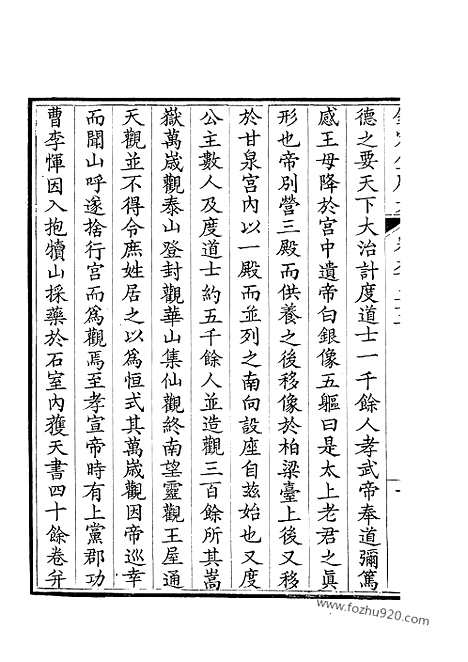 德之要天下大治計度道士一千餘人孝武帝奉道彌篤
感王母降於宫中遺帝白銀像五軀曰是太上老君之真
形也帝别營三殿而供養之後移像於柏梁臺上後又移
於甘泉宫内以一殿而並列之南向設座自兹始也又度
公主數人及度道士約五千餘人並造觀三百餘所其嵩
嶽萬歳觀泰山登封觀華山集仙觀終南望靈觀王屋通
天觀並不得令庶姓居之以為恒式其萬歳觀因帝巡幸
而聞山呼遂捨行宫而為觀焉至孝宣帝時有上黨郡功
曹李惲因入抱犢山採藥於石室内獲天書四十餘卷并
www.fozhu920.com